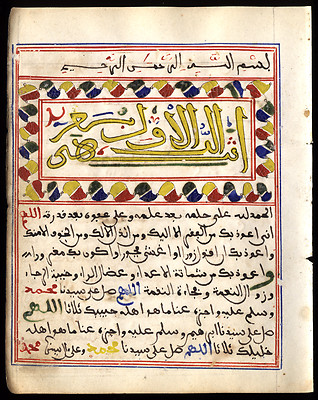 بسم الله الرحمن الرحيم
الاول
الحمد لله على حلمه بعد علمه وعلى عفوه بعد قدرته اللهم
اني اعوذ بك من الفقر الا اليك ومن الذل الا لك ومن الخوف الا منك
واعوذ بك ان اقول زورا او اغشى فجورا او اكون بك مغرورا
واعوذ بك من شماتة الاعداء وعضال الداء وخيبة الرجاء
وزوال النعمة وفجاءة النقمة اللهم صل على سيدنا محمد
وسلم عليه واجزه عنا ما هو اهله حبيبك ثلاثا اللهم
صل على سيدنا ابراهيم وسلم عليه واجزه عنا ما هو اهله
خليلك ثلاثا اللهم صل على سيدنا محمد وعلى ال سيدنا محمد